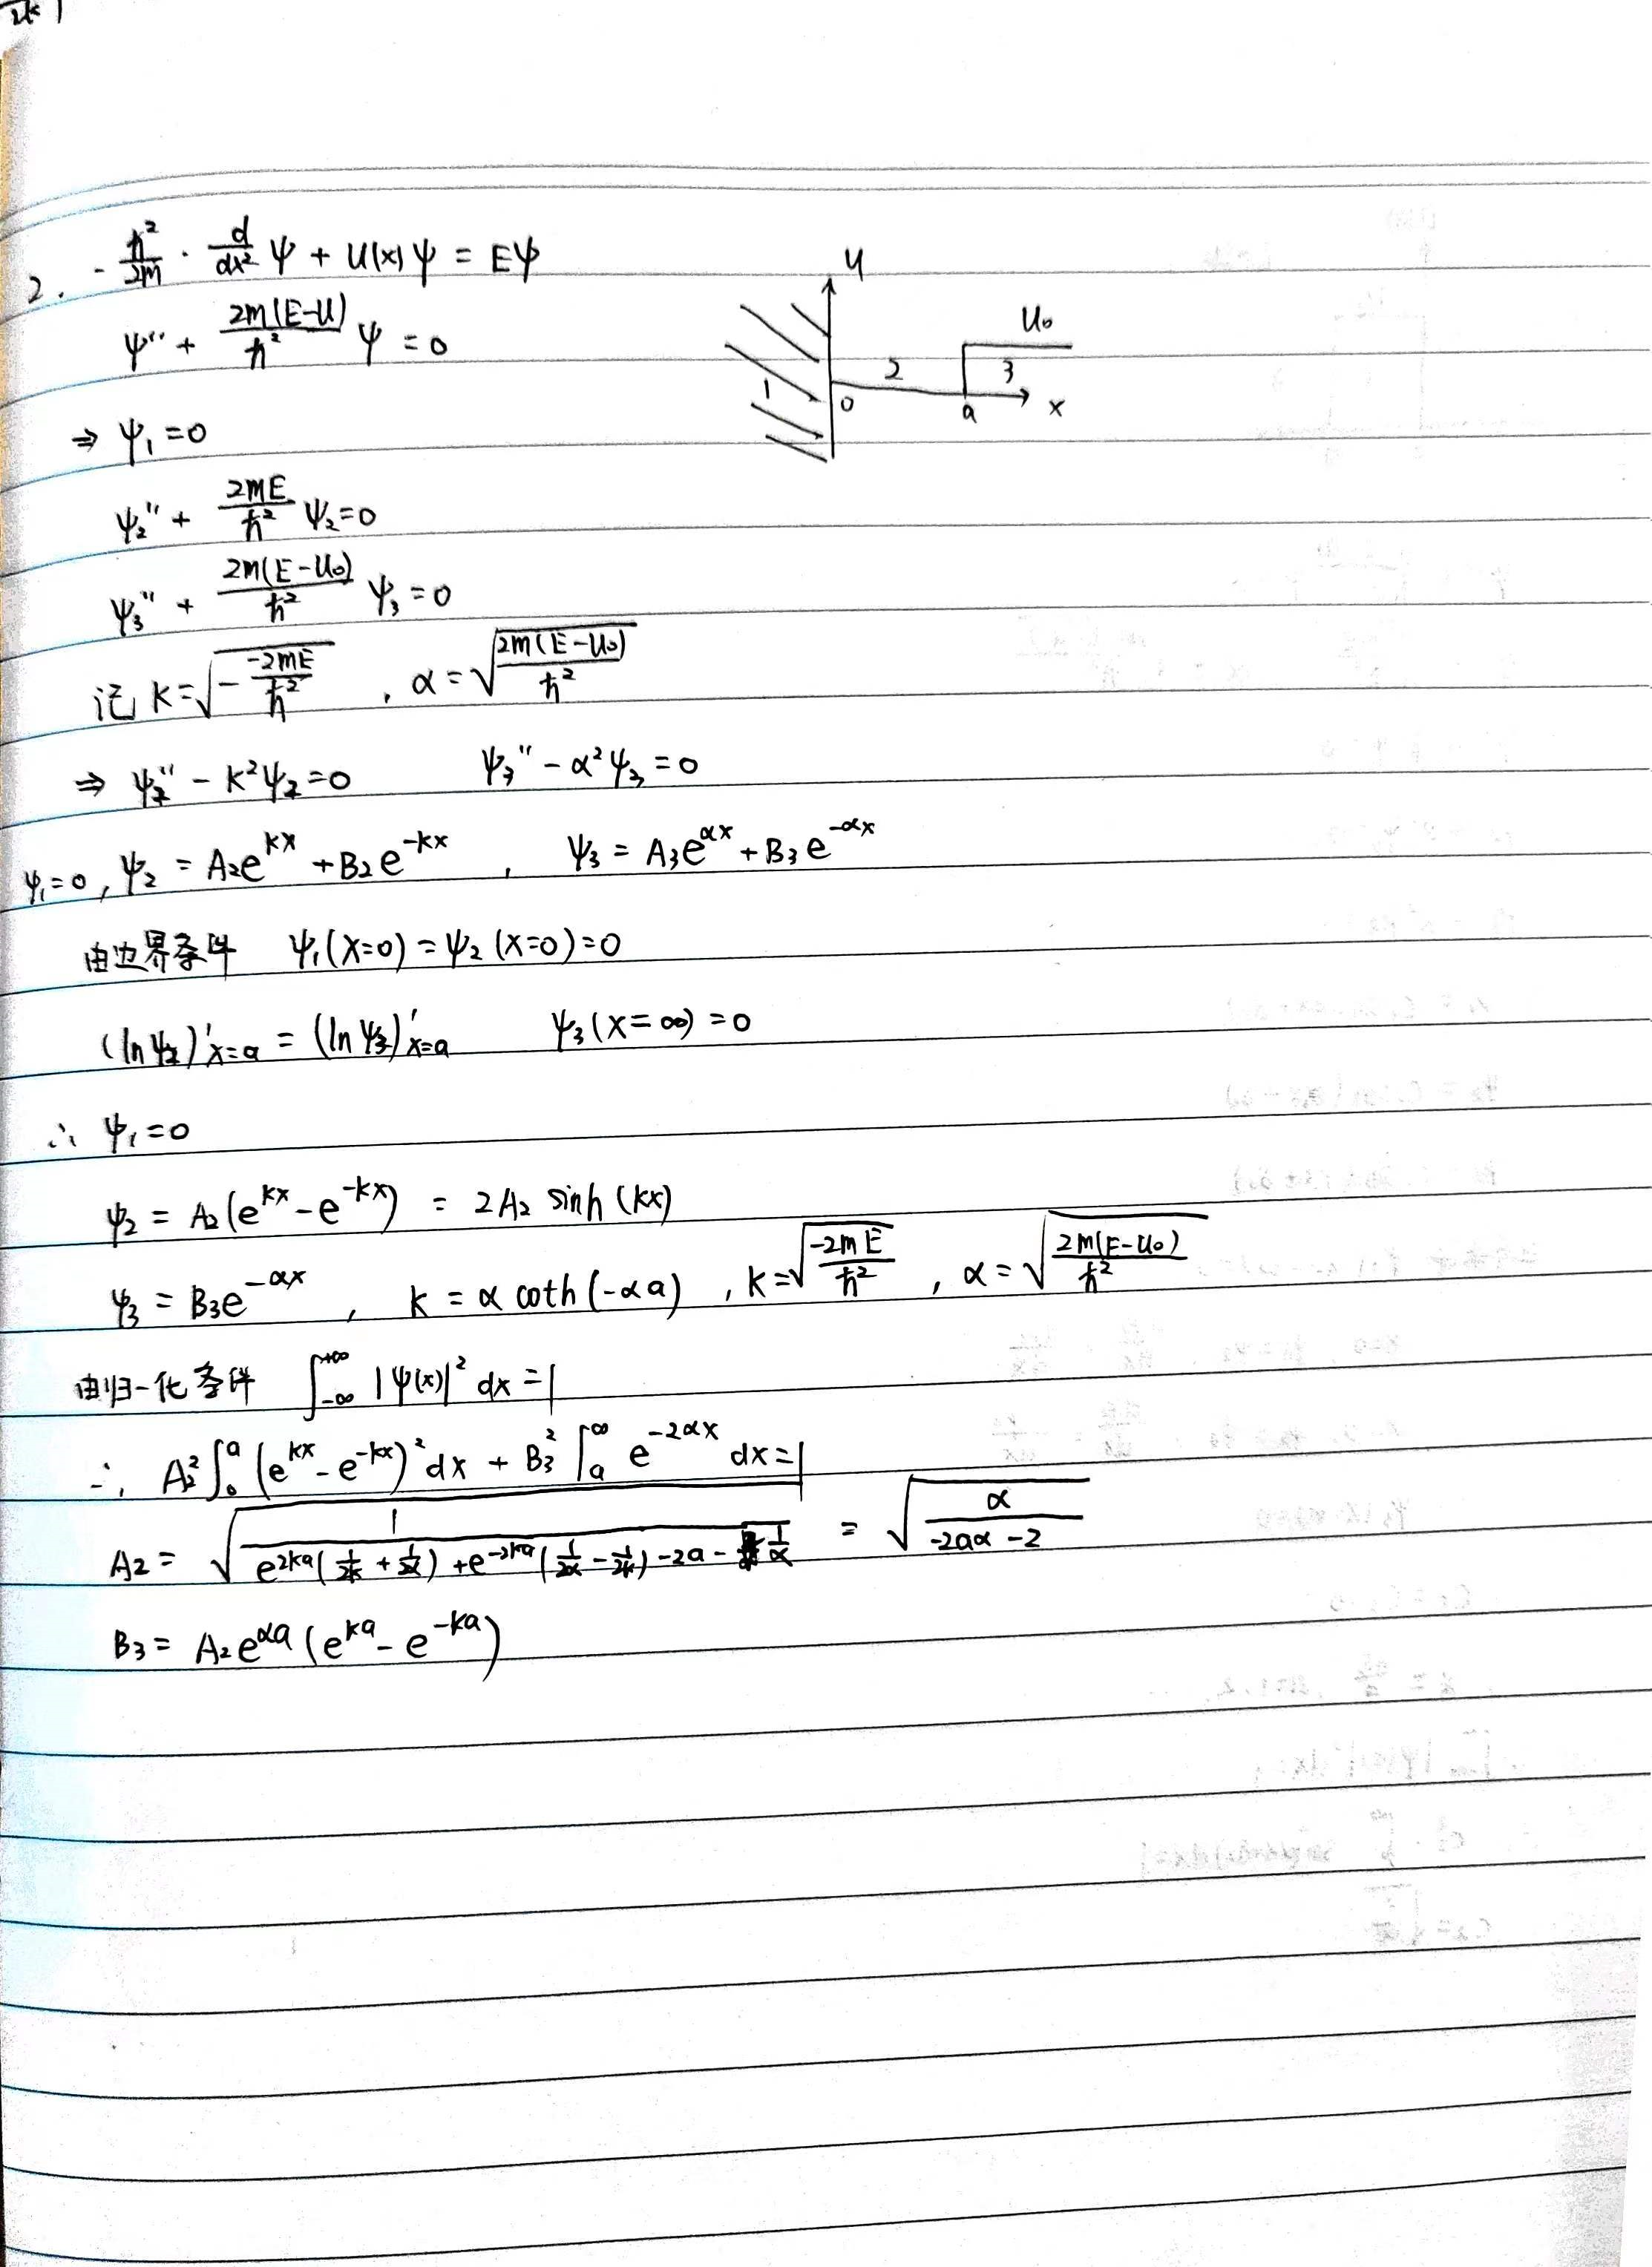 2. -ħ²/2m · d/dx² ψ + U(x)ψ = Eψ
ψ'' + 2m(E-U)/ħ² ψ = 0
U
U₀
1 2 3
0 a x
⇒ ψ₁ = 0
ψ₂'' + 2mE/ħ² ψ₂ = 0
ψ₃'' + 2m(E-U₀)/ħ² ψ₃ = 0
记 k = √(- -2mE/ħ²) , α = √(2m(E-U₀)/ħ²)
⇒ ψ₂'' - k²ψ₂ = 0 ψ₃'' - α²ψ₃ = 0
ψ₁=0, ψ₂ = A₂e^{kx} + B₂e^{-kx} , ψ₃ = A₃e^{αx} + B₃e^{-αx}
由边界条件 ψ₁(x=0) = ψ₂(x=0) = 0
(lnψ₂)'ₓ₌ₐ = (lnψ₃)'ₓ₌ₐ ψ₃(x=∞) = 0
∴ ψ₁ = 0
ψ₂ = A₂(e^{kx} - e^{-kx}) = 2A₂ sinh(kx)
ψ₃ = B₃e^{-αx} , k = α coth(-αa) , k = √(-2mE/ħ²) , α = √(2m(E-U₀)/ħ²)
由归一化条件 ∫_{-∞}^{+∞} |ψ(x)|² dx = 1
∴ A₂² ∫₀^a (e^{kx} - e^{-kx})² dx + B₃² ∫ₐ^∞ e^{-2αx} dx = 1
A₂ = √(1/(e^{2ka}(1/2k + 1/2α) + e^{-2ka}(1/2α - 1/2k) - 2a - 1/α)) = √(α/(-2aα - 2))
B₃ = A₂e^{αa}(e^{ka} - e^{-ka})